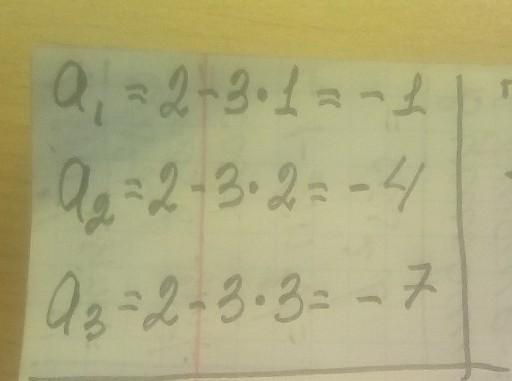 a₁ = 2 - 3 · 1 = - 1
a₂ = 2 - 3 · 2 = - 4
a₃ = 2 - 3 · 3 = - 7